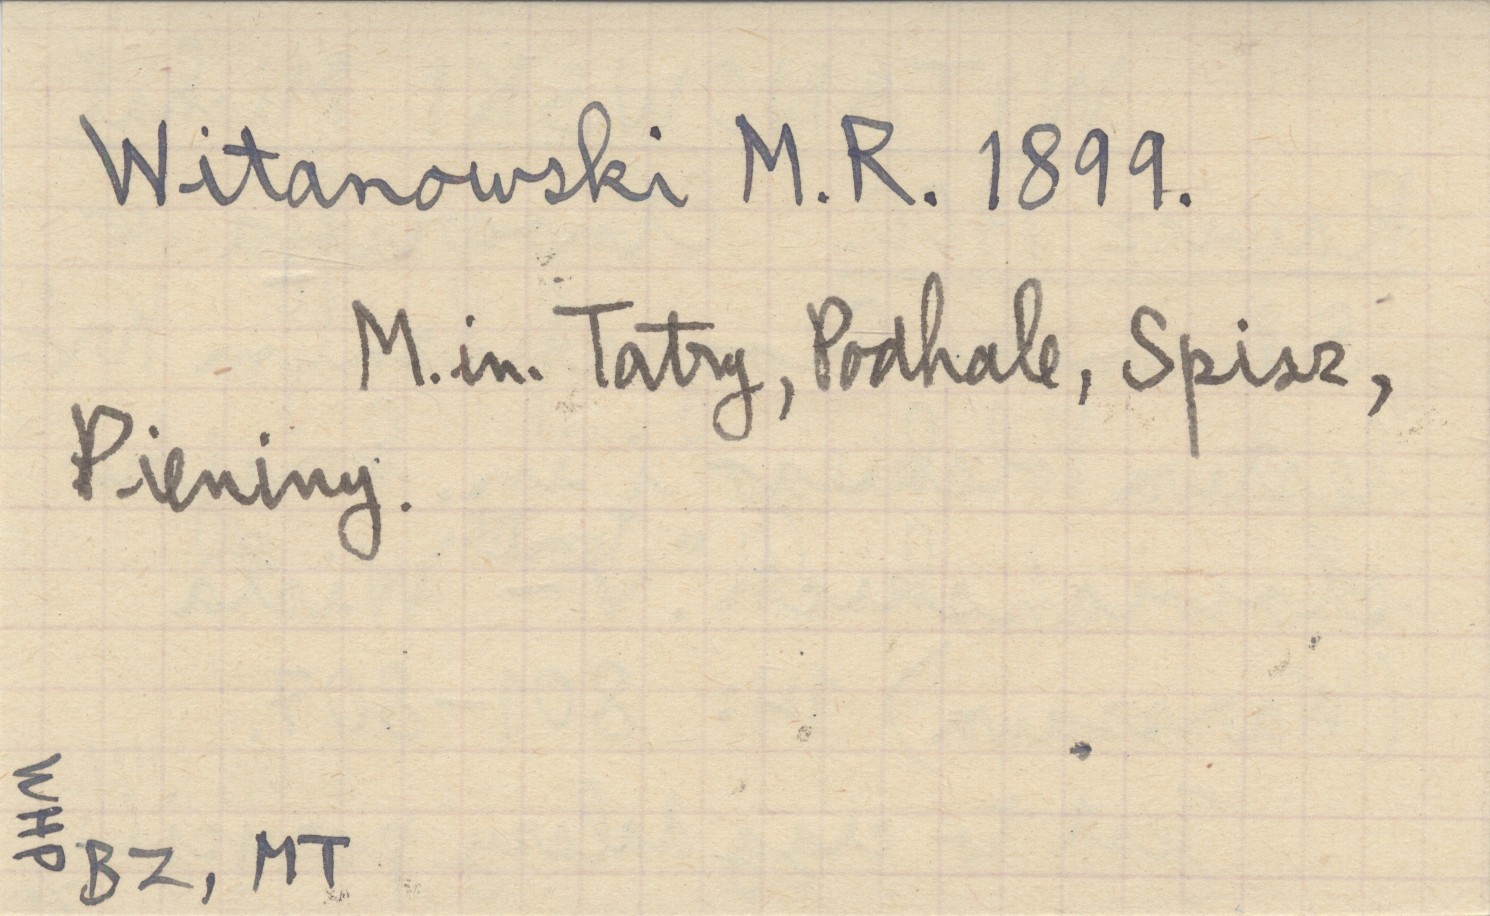 Witanowski M.R. 1899.
M.in. Tatry, Podhale, Spisz,
Pieniny.
WHP
BZ, MT